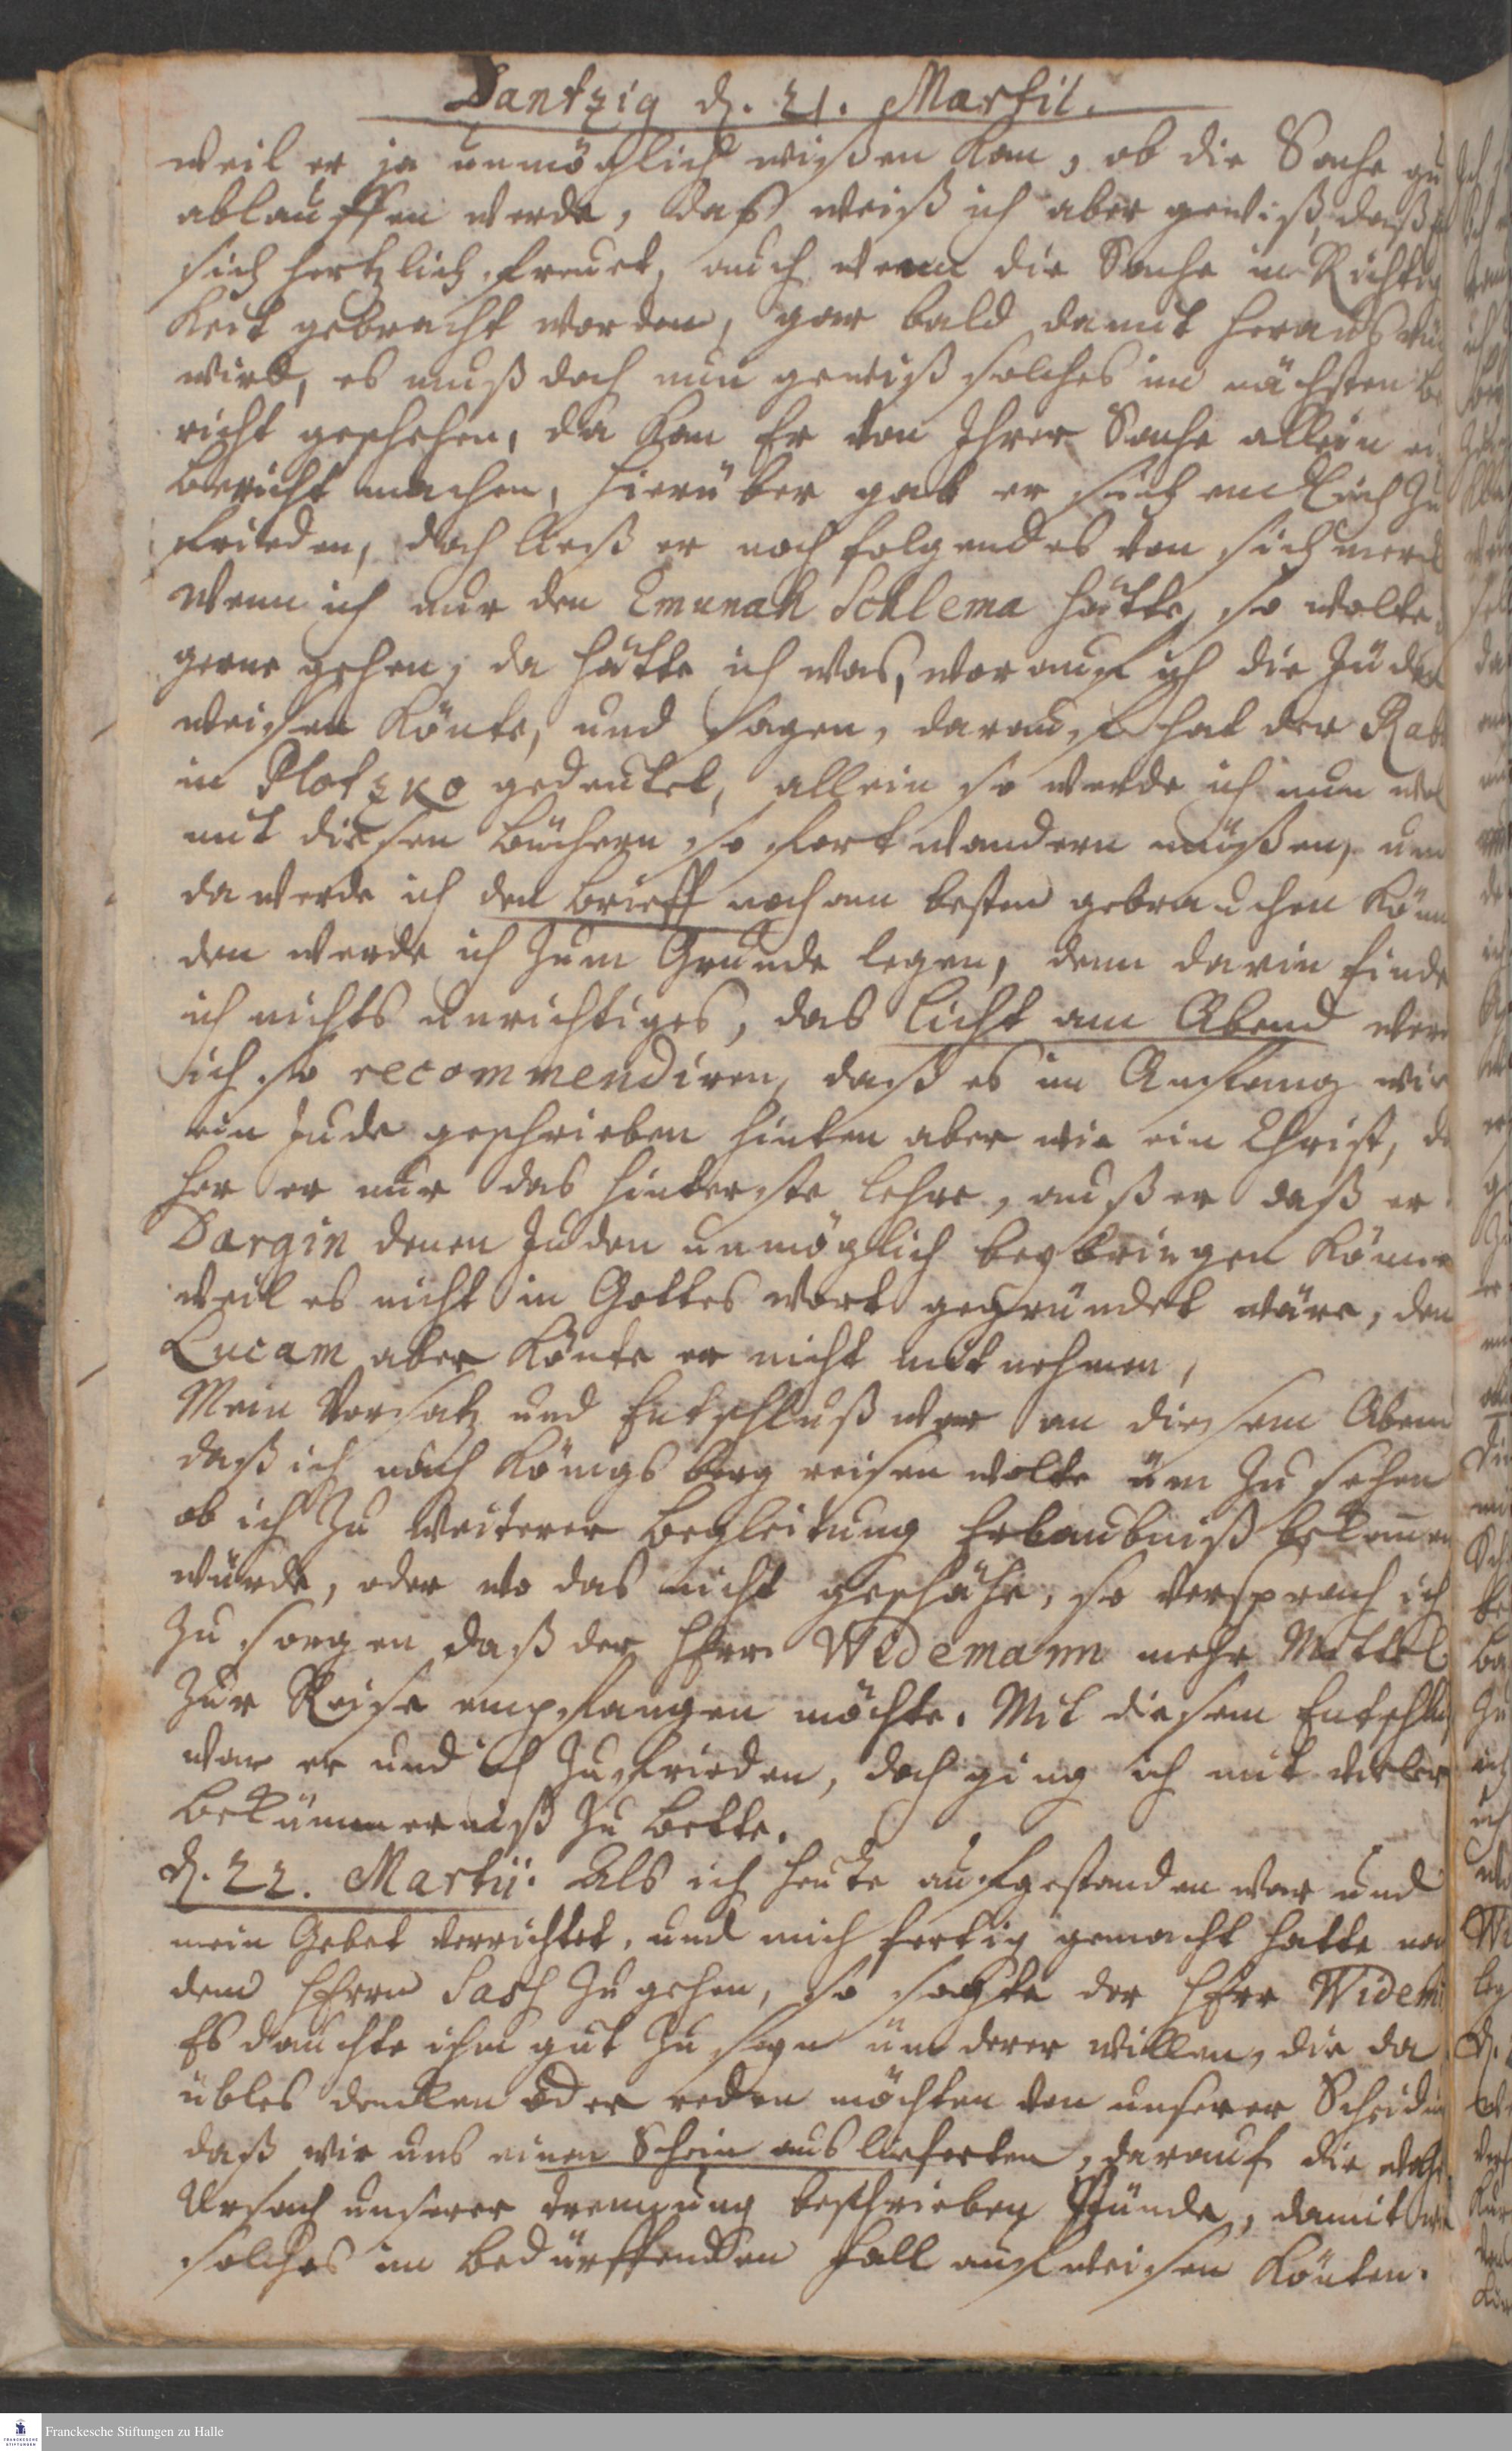 Dantzig d. 21. Martii.
weil er ja unmöglich wißen kan, ob die Sache gu
ablauffen werde, das weiß ich aber gewiß, daß
sich hertzlich freuet, auch wenn die Sache in Richtig
keit gebracht worden, gar bald damit heraus
wird, es muß doch nun gewiß solches im nächsten be
richt geschehen, da kan Er von Ihrer Sache allein ei
bericht machen, hierüber gab er sich endlich zu
frieden, doch ließ er noch folgendes von sich merck
wenn ich nur den Emunah Schlema hätte, so wolte
gerne gehen, da hätte ich was, worauf ich die Jüden
weisen könte, und sagen, darauf hat der Rab
in Plotzko gedeutet, allein so werde ich nun wol
mit diesen büchern so fort wandern müßen, und
da werde ich den brieff noch am besten gebrauchen könn
den werde ich zum Grunde legen, denn darin finde
ich nichts unrichtiges, das Licht am Abend wer
ich so recommendiren, daß es im Anfang wie
ein Jude geschrieben hinten aber wie ein Christ, da
her er nur das hinderste lehre, außer daß er
Dargin denen Juden unmöglich beybringen könne
weil es nicht in Gottes wort gegründet wäre, den
Lucam aber könte er nicht mit nehmen,
Mein Vorsatz und Entschluß war an diesem Abend
daß ich nach Königsberg reisen wolte üm zu sehen
ob ich zu weiterer begleitung Erlaubniß bekommen
würde, oder wo das nicht geschähe, so versprach ich
zu sorgen daß der Herr Widemann mehr Mittel
zur Reise empfangen möchte. Mit diesem Entschluß
war er und ich zufrieden, doch ging ich mit vieler
bekümmerniß zu bette.
d. 22. Martii. Als ich heute aufgestanden war und
mein Gebet verrichtet, und mich fertig gemacht hatte na
dem Herrn Sasch zu gehen, so sagte der Herr Widem
Es dauchte ihm gut zu seyn üm derer willen, die da
übles dencken oder reden möchten von unserer Scheidu
daß wir uns einen Schein auslieferten, darauf die wahr
Ursach unserer trennung beschrieben stünde, damit wir
solches im bedürffenden fall aufweisen könten.
Franckesche Stiftungen zu Halle